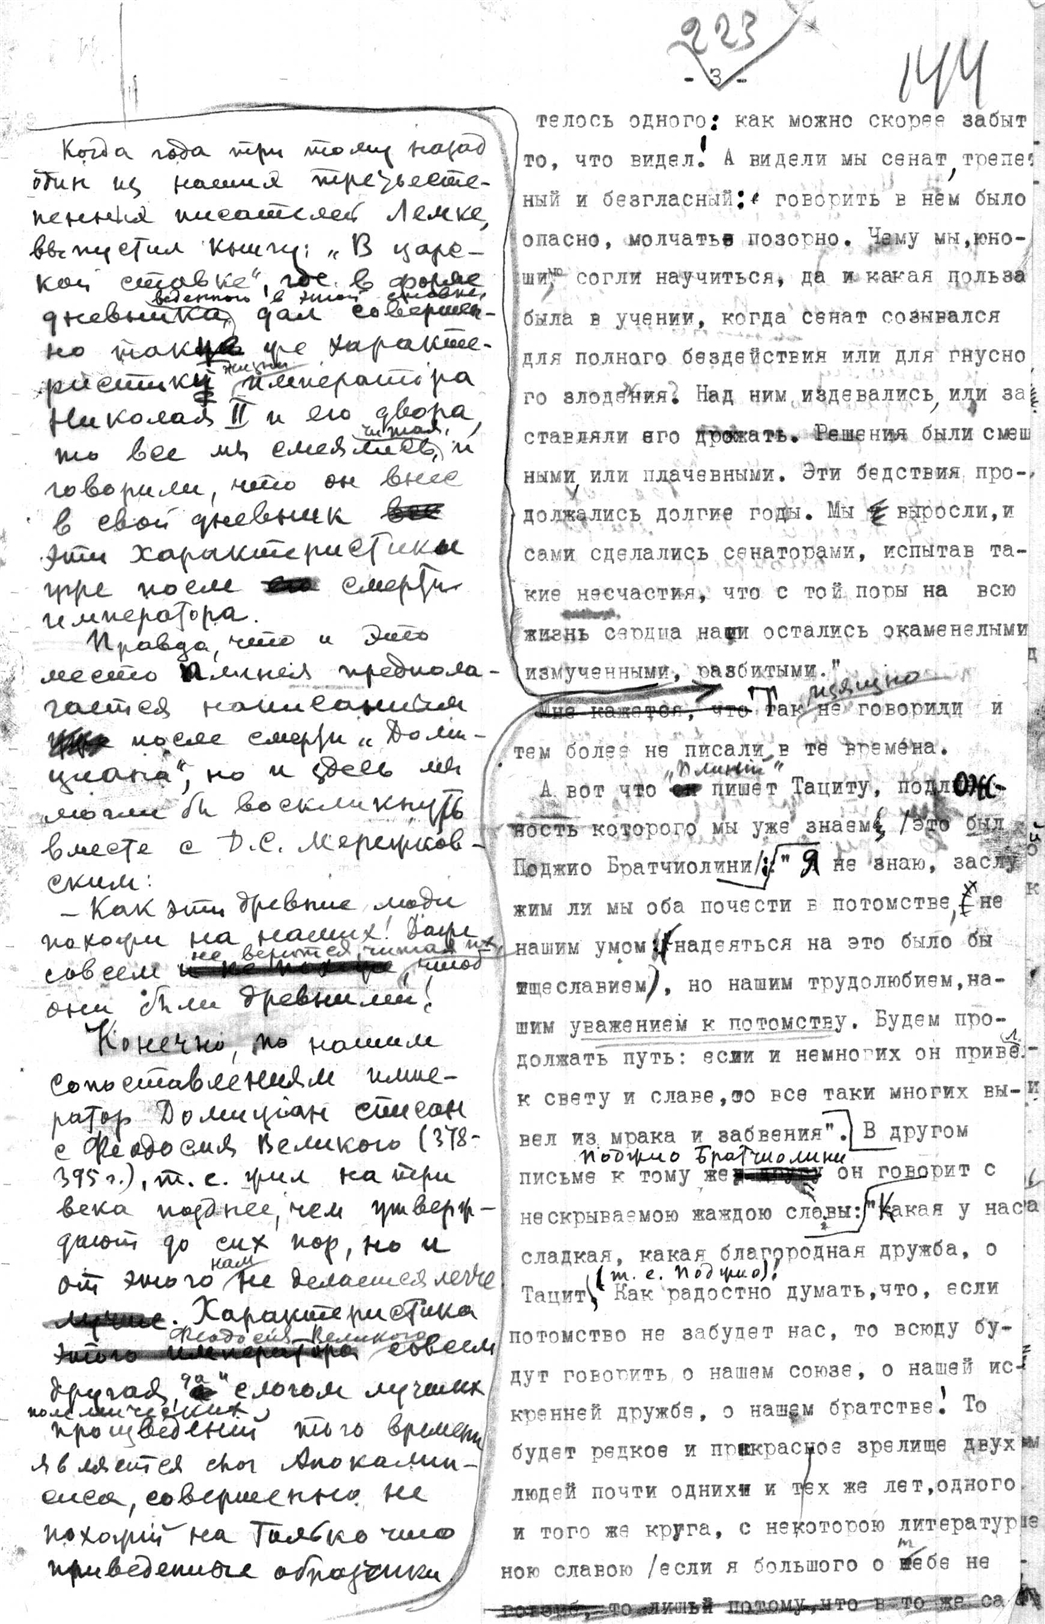 223
- 3 -
144
Когда года три тому назад
один из наших трезвесте-
пенных писателей Лемке,
выпустил книгу: „В царс-
кой ставке“, где в форме
веденного в этой ставке,
дневника, дал совершен-
но такую же характе-
ристику жизни императора
Николая II и его двора,
то все мы смеялись, читая, и
говорили, что он внес
в свой дневник все
эти характеристики
уже после его смерти
императора.
Правда, что и это
место Плиния предпола-
гается написанным
уже после смерти „Доми-
циана“, но и здесь мы
могли бы воскликнуть
вместе с Д.С. Мережков-
ским:
— Как эти древние люди
похожи на наших! Даже
совсем не верится, читая их, чтоб
они были древними!
Конечно, по нашим
сопоставлениям импе-
ратор Домициан списан
с Феодосия Великого (378-
395 г.), т.е. жил на три
века позднее, чем утверж-
дают до сих пор, но и
от этого нам не делается легче
лучше. Характеристика
Феодосия Великого
этого императора совсем
другая, да и слогом лучших
полемических
произведений того времени
является слог Апокалип-
сиса, совершенно не
похожий на только что
приведенные образчики.
телось одного: как можно скорее забыт
то, что видел! А видели мы сенат, трепет
ный и безгласный: говорить в нем было
опасно, молчать позорно. Чему мы, юно-
ши, согли научиться, да и какая польза
была в учении, когда сенат созывался
для полного бездействия или для гнусно
го злодения? Над ним издевались, или за
ставляли его дрожать. Решения были смеш
ными, или плачевными. Эти бедствия про-
должались долгие годы. Мы выросли, и
сами сделались сенаторами, испытав та-
кие несчастия, что с той поры на всю
жизнь сердца наши остались окаменелыми
измученными, разбитыми."
Мне кажется, что Так изящно не говорили и
тем более не писали в те времена.
А вот что „Плиний“ пишет Тациту, подлож-
ность которого мы уже знаем, /это был
Поджио Братчиолини/: "Я не знаю, заслу
жим ли мы оба почести в потомстве, не
нашим умом (надеяться на это было бы
тщеславием), но нашим трудолюбием, на-
шим уважением к потомству. Будем про-
должать путь: если и немногих он привел
к свету и славе, то все таки многих вы-
вел из мрака и забвения". В другом
письме к тому же Поджио Братчиолини он говорит с
нескрываемою жаждою славы: "Какая у нас
сладкая, какая благородная дружба, о
Тацит (т.е. Поджио)! Как радостно думать, что, если
потомство не забудет нас, то всюду бу-
дут говорить о нашем союзе, о нашей ис-
кренней дружбе, о нашем братстве! То
будет редкое и прекрасное зрелище двух
людей почти одних и тех же лет, одного
и того же круга, с некоторою литератур
ною славою /если я большого о тебе не
говорю, то лишьй потому, что в то же са